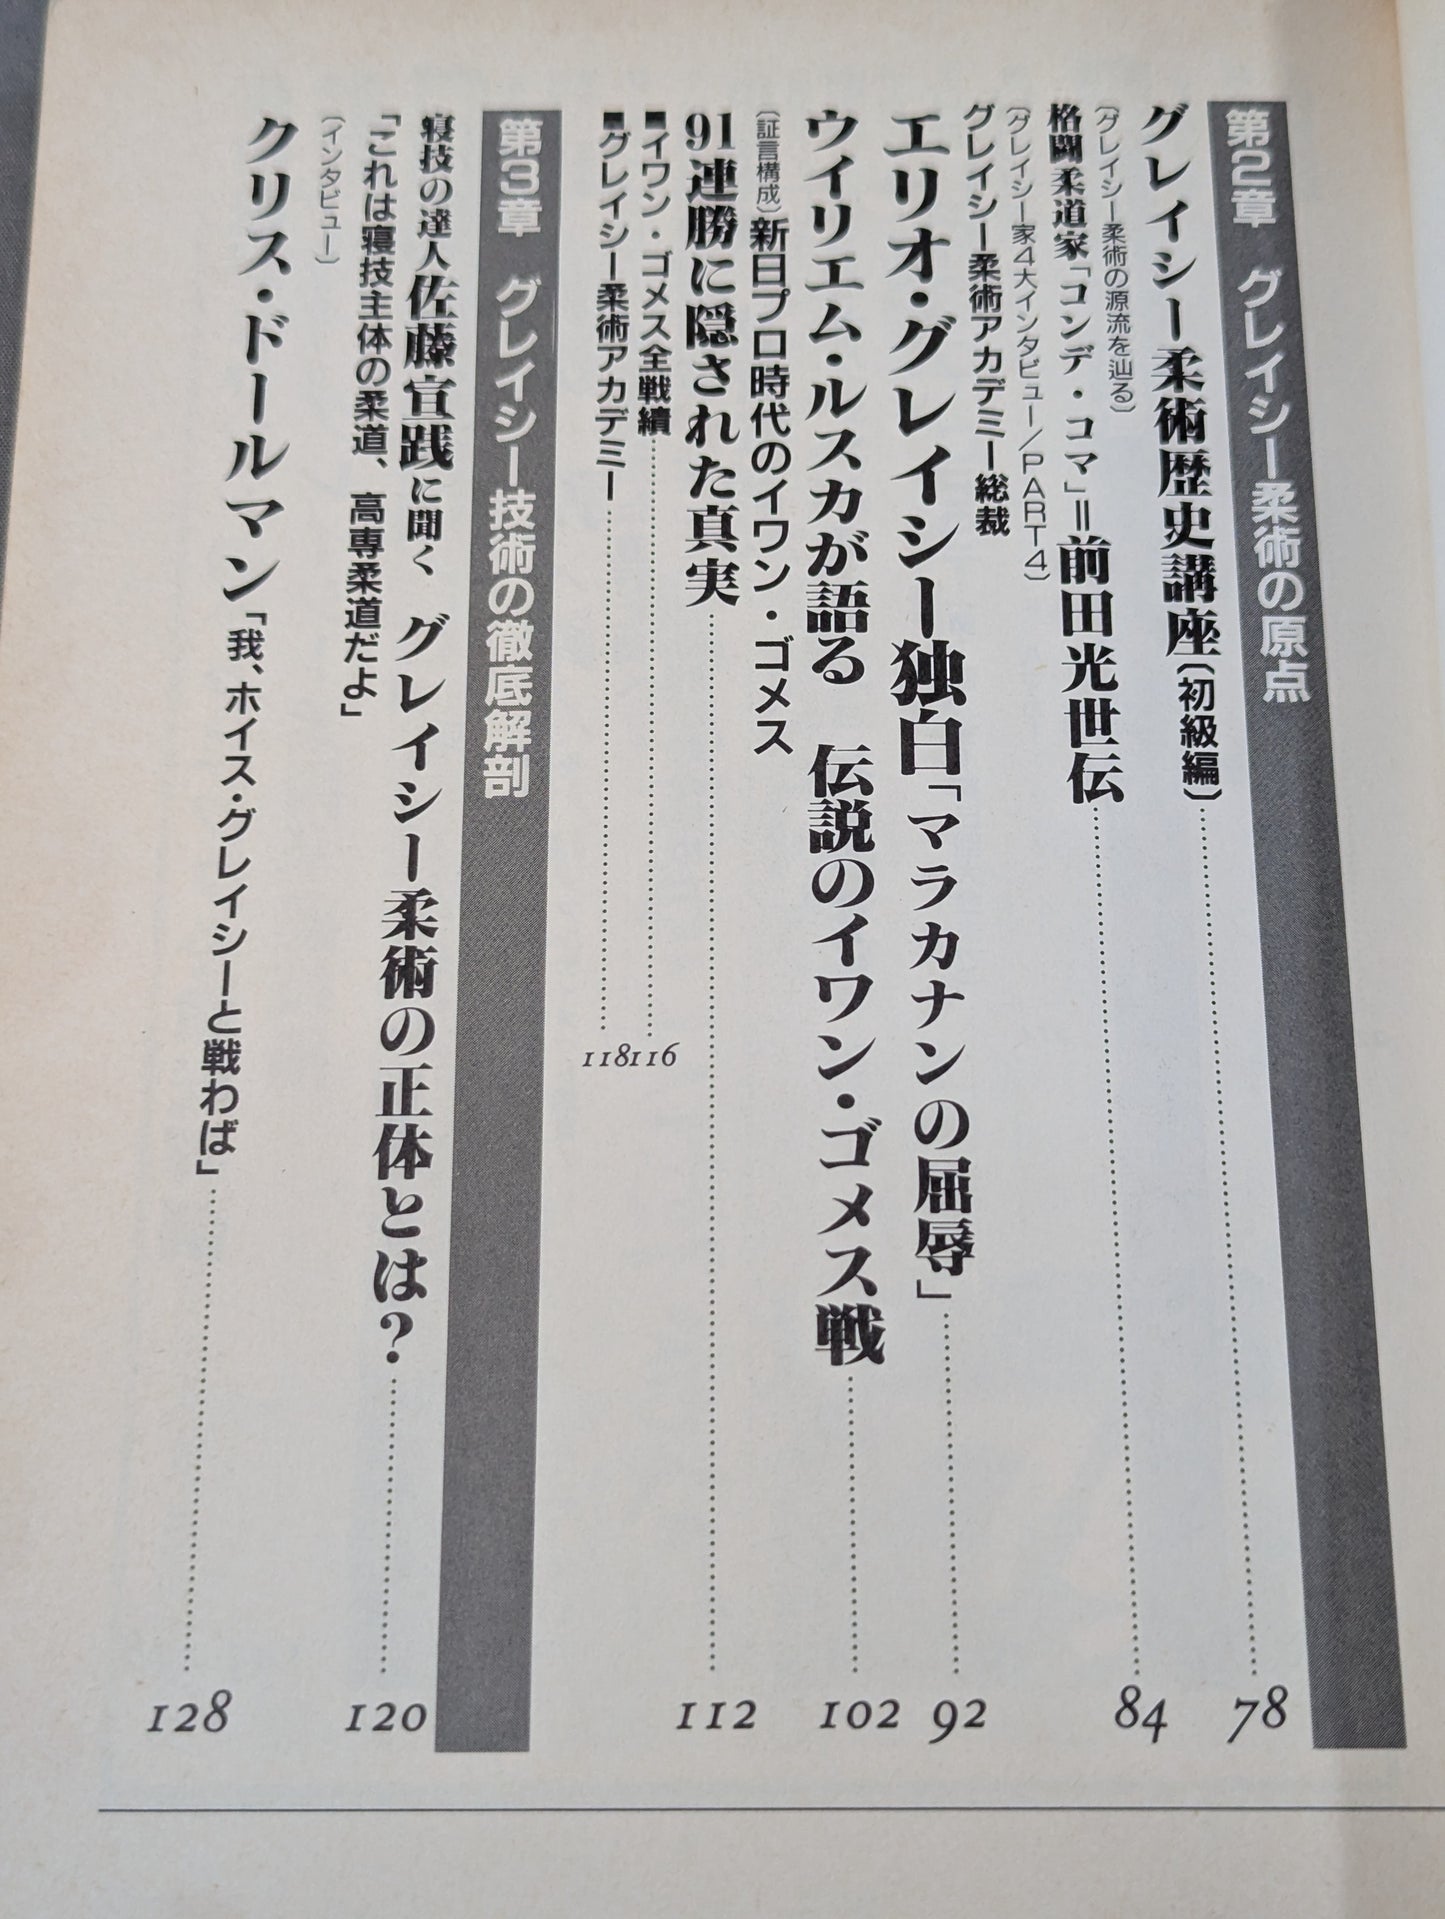 第2章 グレイシー柔術の原点
グレイシー柔術歴史講座〔初級編〕 78
〔グレイシー柔術の源流を辿る〕
格闘柔道家「コンデ・コマ」＝前田光世伝 84
〔グレイシー家4大インタビュー／PART4〕
グレイシー柔術アカデミー総裁
エリオ・グレイシー独白「マラカナンの屈辱」 92
ウイリエム・ルスカが語る 伝説のイワン・ゴメス戦 102
〔証言構成〕新日プロ時代のイワン・ゴメス
91連勝に隠された真実 112
■イワン・ゴメス全戦績 116
■グレイシー柔術アカデミー 118
第3章 グレイシー技術の徹底解剖
寝技の達人佐藤宣践に聞く グレイシー柔術の正体とは？ 120
「これは寝技主体の柔道、高専柔道だよ」
〔インタビュー〕
クリス・ドールマン「我、ホイス・グレイシーと戦わば」 128